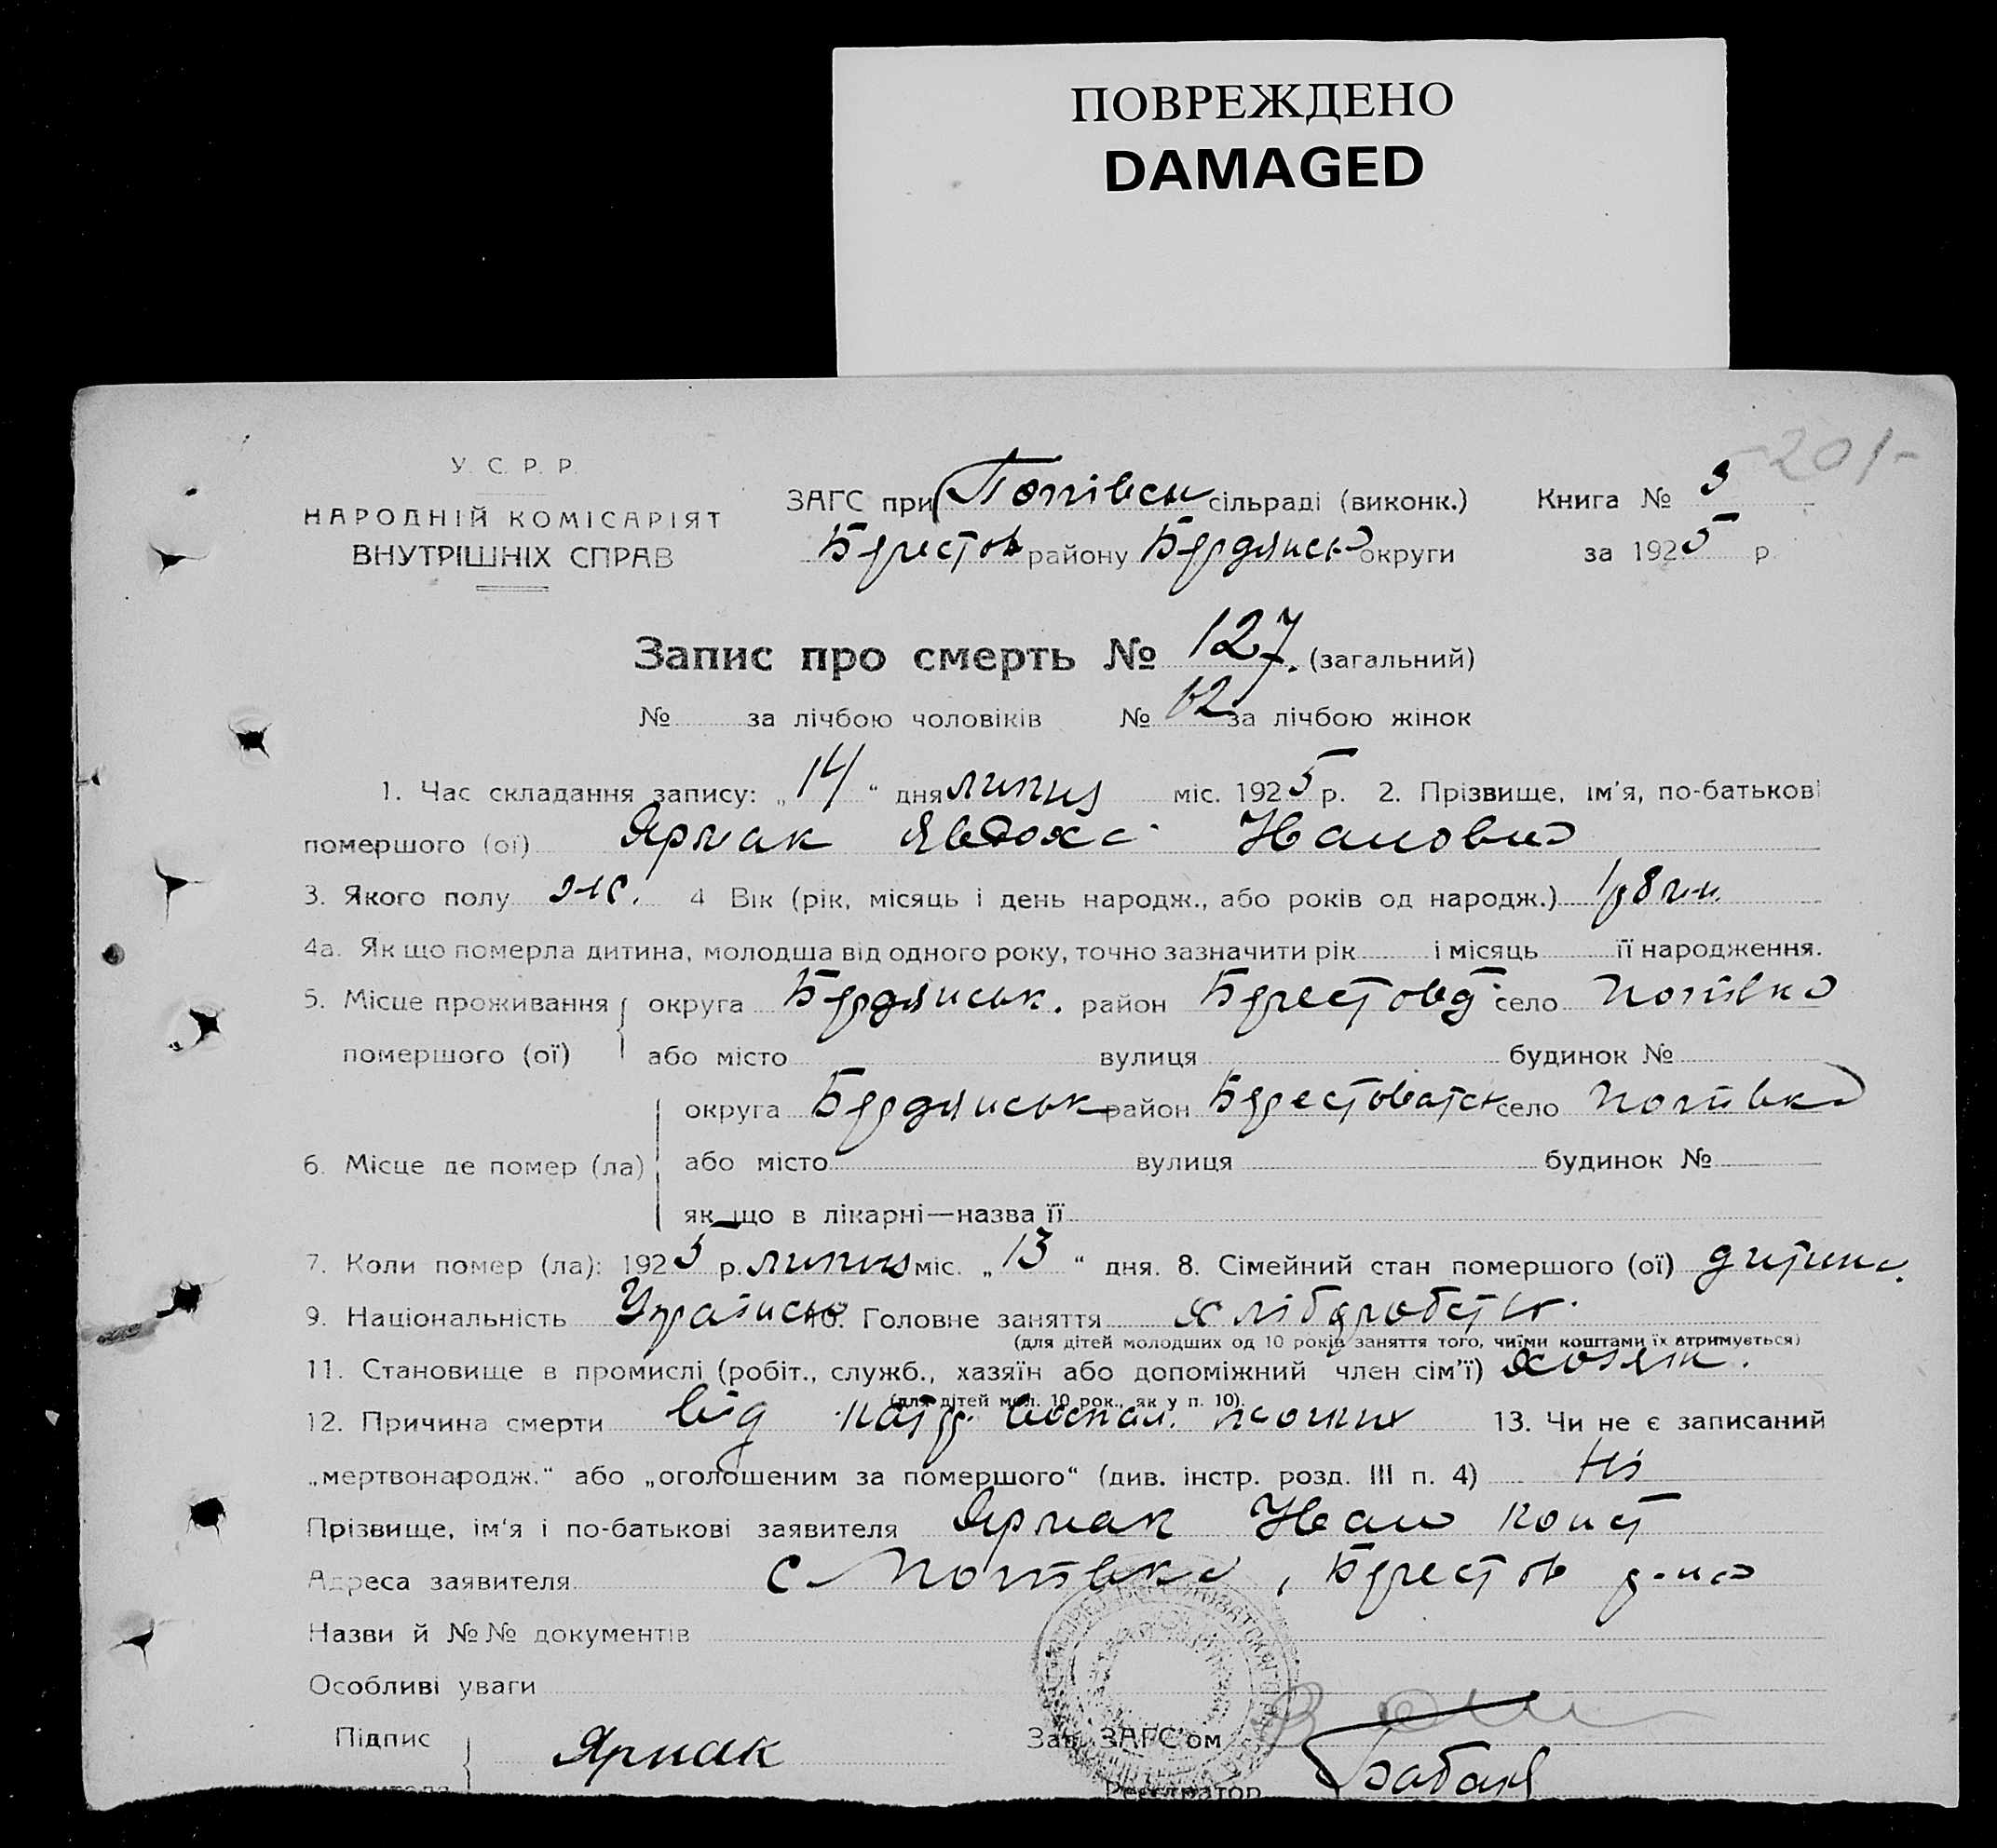 ПОВРЕЖДЕНО
DAMAGED
201-
У. С. Р. Р.
НАРОДНІЙ КОМІСАРІЯТ
ВНУТРІШНІХ СПРАВ
ЗАГС при Попівськ сільраді (виконк.) Книга № 3
Берестов району Бердянсько округи за 1925 р.
Запис про смерть № 127. (загальний)
№ за лічбою чоловіків № 62 за лічбою жінок
1. Час складання запису: „14“ дня липня міс. 1925 р. 2. Прізвище, ім'я, по-батькові
помершого (ої) Ярмак Явдоха Ивановна
3. Якого полу ж. 4 Вік (рік, місяць і день народж., або років од народж.) 1р 8 м.
4а. Як що померла дитина, молодша від одного року, точно зазначити рік і місяць її народження.
5. Місце проживання округа Бердянськ. район Берестов село Попівка
помершого (ої) або місто вулиця будинок №
округа Бердянськ район Берестоватськ село Попівка
6. Місце де помер (ла) або місто вулиця будинок №
як що в лікарні—назва її
7. Коли помер (ла): 1925 р. липня міс. „13“ дня. 8. Сімейний стан помершого (ої) дитина.
9. Національність Українсько 10. Головне заняття хліборобств.
(для дітей молодших од 10 років заняття того, чиїми коштами їх втримується)
11. Становище в промислі (робіт., служб., хазяїн або допоміжний член сім'ї) хозяїн.
(для дітей мол. 10 рок., як у п. 10).
12. Причина смерти від воспал. 13. Чи не є записаний
„мертвонародж.“ або „оголошеним за помершого“ (див. інстр. розд. III п. 4) Ні
Прізвище, ім'я і по-батькові заявителя Ярмак Иван Конст
Адреса заявителя с Попівка, Берестов р-на
Назви й №№ документів
Особливі уваги
Підпис Ярмак Зав. ЗАГС'ом
Реєстратор